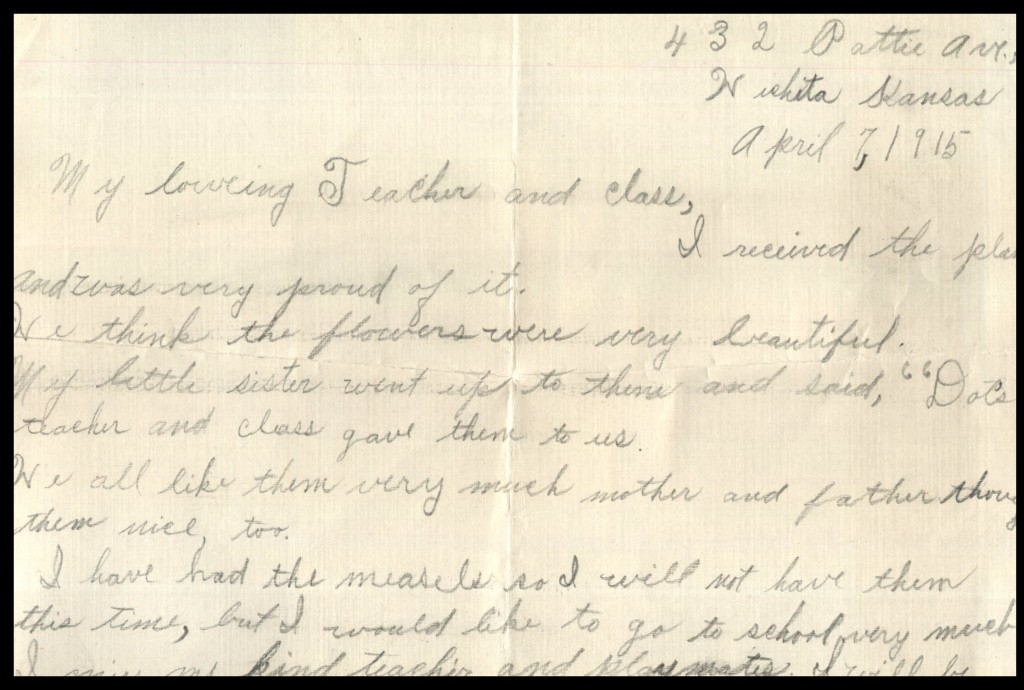 432 Pattie Ave.,
Wishita Kansas
April 7, 1915
My loveing Teacher and class,
I received the
and was very proud of it.
We think the flowers were very beautiful.
My little sister went up to them and said, "Dot's
teacher and class gave them to us.
We all like them very much mother and father
them nice, too.
I have had the measels so I will not have them
this time, but I would like to go to school very much
I miss my kind teacher and playmates. I will be